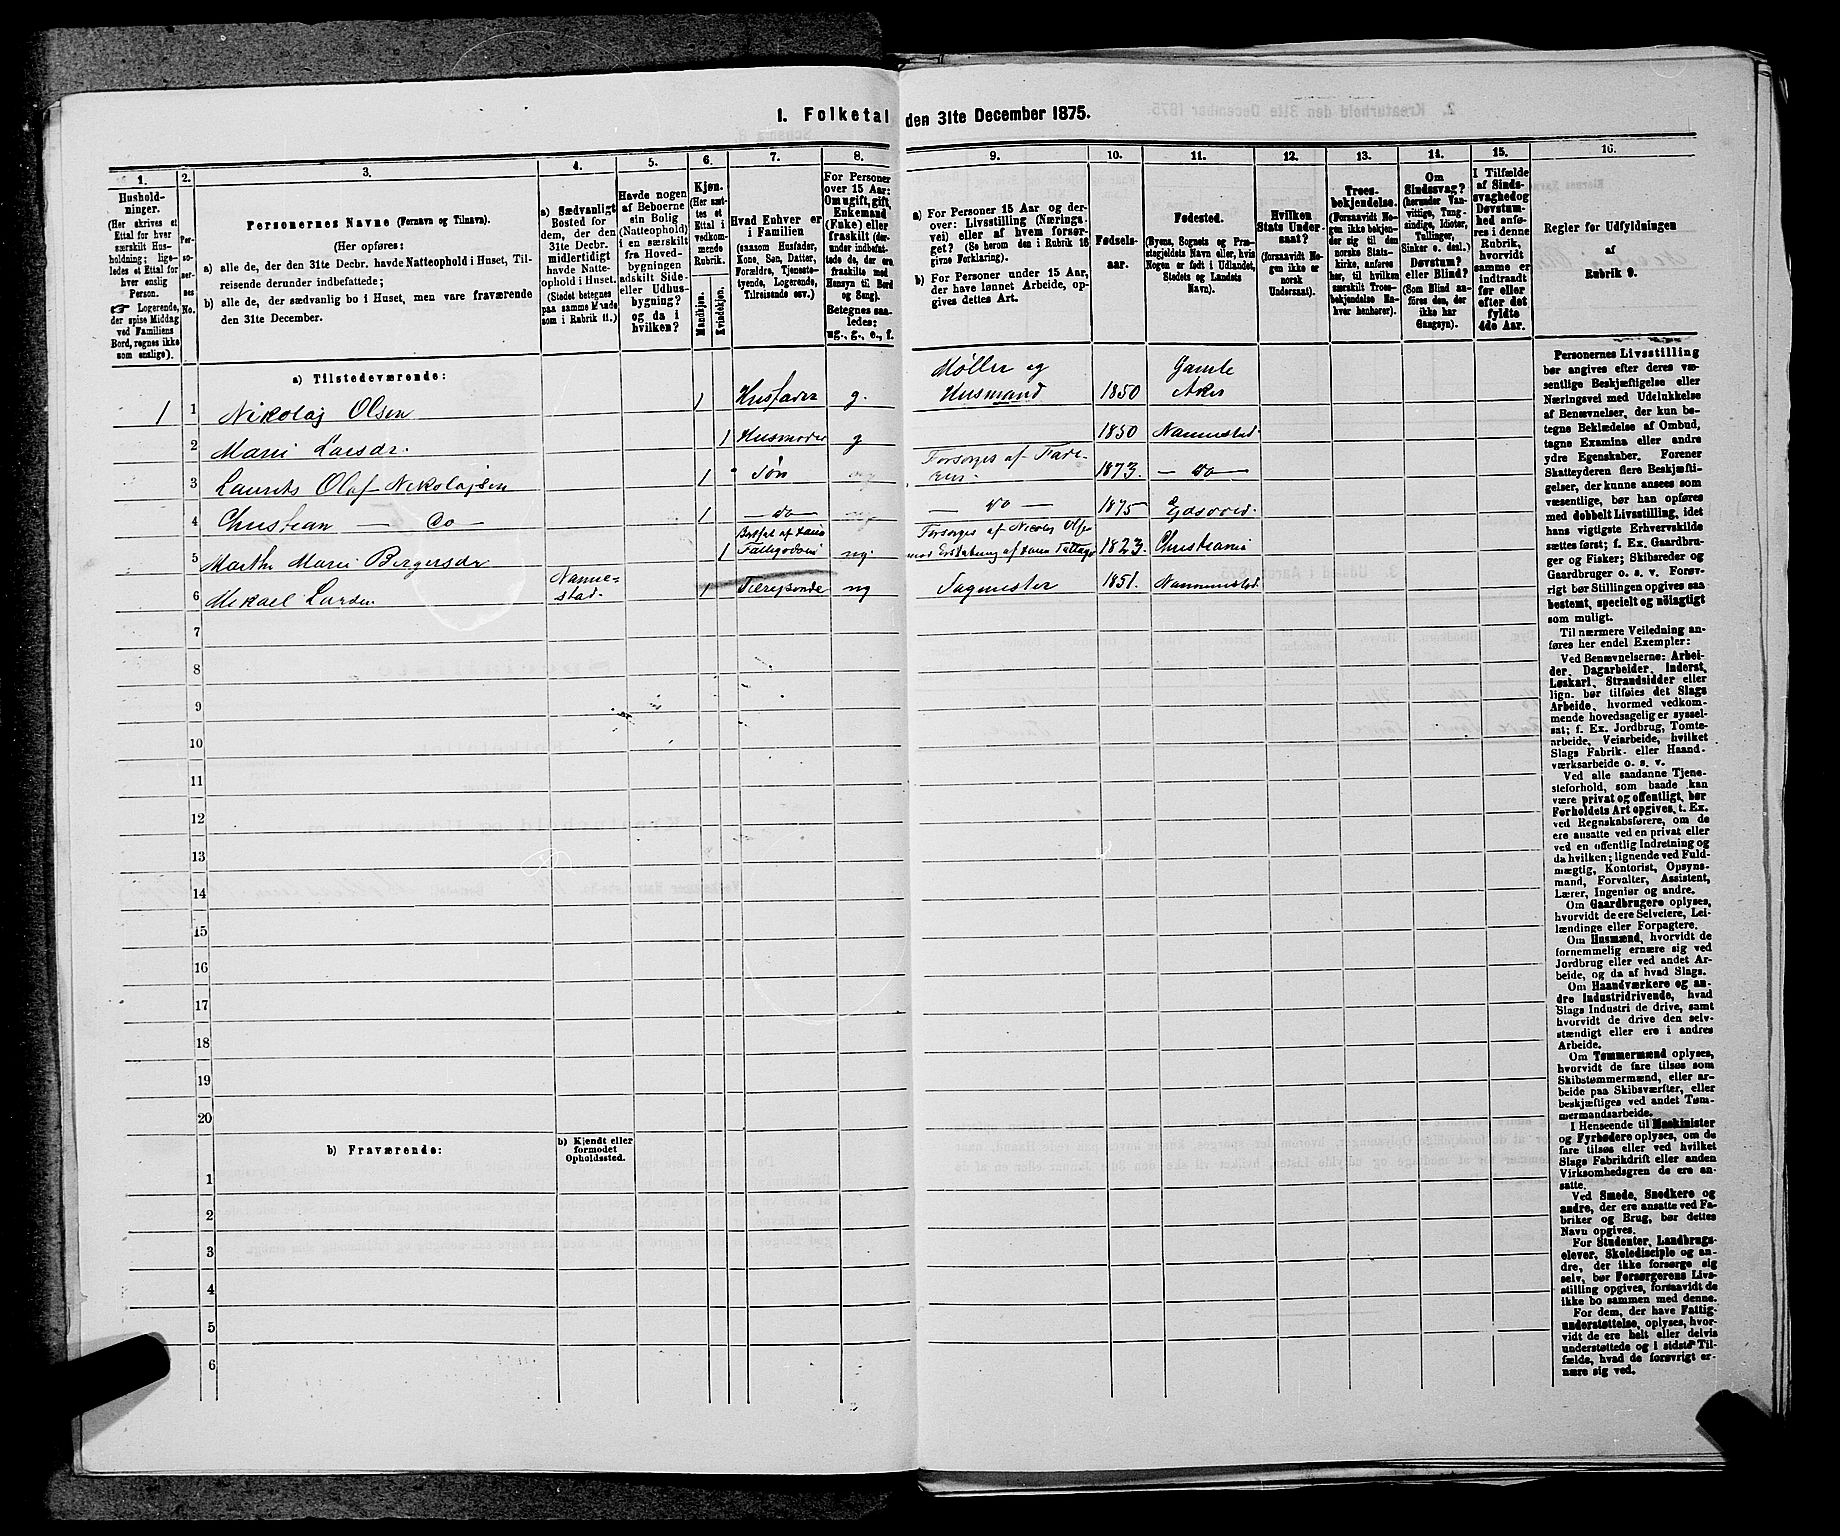 I. Folketal den 31te December 1875.
1.
2.
3.
4.
5.
6.
7.
8.
9.
10.
11.
12.
13.
14.
15.
16.
Hushold-
ninger.
(Her skrives et
Ettal for hver
særskilt Hus-
holdning; lige-
ledes et Ettal for
hver enslig
Person.
☞ Logerende,
der spise Middag
ved Familiens
Bord, regnes ikke
som enslige).
Per-
so-
ner-
nes
No.
Personernes Navne (Fornavn og Tilnavn).
(Her opføres:
a) alle de, der den 31te Decbr. havde Natteophold i Huset, Til-
reisende derunder indbefattede;
b) alle de, der sædvanlig bo i Huset, men vare fraværende
den 31te December.
a) Sædvanligt
Bosted for
dem, der den
31te Decbr.
midlertidigt
havde Natte-
ophold i Huset.
(Stedet betegnes
paa samme Maade
som i Rubrik 11.)
Havde nogen
af Beboerne
sin Bolig
(Natteophold)
i en særskilt
fra Hoved-
bygningen
adskilt Side-
eller Udhus-
bygning?
og da i
hvilken?
Kjøn.
(Her sæt-
tes et
Ettal i
vedkom-
mende
Rubrik.
Mandkjøn.
Kvindekjøn.
Hvad Enhver er
i Familien
(saasom Husfader,
Kone, Søn, Datter,
Forældre, Tjeneste-
tyende, Logerende,
Tilreisende osv.)
For Personer
over 15 Aar:
Om ugift, gift,
Enkemand
(Enke) eller
fraskilt (der-
under indbefat-
tede de, der ere
fraskilte med
Hensyn til Bord
og Seng).
Betegnes saa-
ledes:
ug., g., e., f.
a) For Personer 15 Aar og der-
over: Livsstilling (Nærings-
vei) eller af hvem forsør-
get? (Se herom den i Rubrik 16
givne Forklaring).
b) For Personer under 15 Aar,
der have lønnet Arbeide, op-
gives dettes Art.
Fødsels-
aar.
Fødested.
(Byens, Sognets og Præ-
stegjeldets Navn eller, hvis
Nogen er født i Udlandet,
Stedets og Landets
Navn).
Hvilken
Stats Under-
saat?
(forsaavidt No-
gen ikke er
norsk
Undersaat).
Troes-
bekjendelse.
(Forsaavidt No-
gen ikke bekjen-
der sig til den
norske Stats-
kirke, anføres
her, til hvilken
særskilt Troes-
bekjendelse En-
hver henhører).
Om
Sindssvag?
(herunder Van-
vittige, Tung-
sindige, Idioter,
Tullinger,
Sinker o. desl.)
Døvstum?
eller Blind?
(Som Blind an-
føres den, der
ikke har
Gangsyn).
I Tilfælde
af Sinds-
svaghed og
Døvstum-
hed anfø-
res i denne
Rubrik,
hvorvidt
samme er
indtraadt
før eller
efter det
fyldte
4de Aar.
Regler for Udfyldningen
af
Rubrik 9.
a) Tilstedeværende:
1 1 Nikolaj Olsen 1 Husfader g. Møller og Husmand 1850 Gamle Aker
2 Marie Larsdr. 1 Husmoder g 1850 Nannestad.
3 Laurits Olaf Nikolajsen 1 Søn Forsørges af Faderen. 1873. — do —
4 Christian — do — 1 — do — — do — 1875 Eidsvold.
5 Marthe Marie Bergersdr 1 ug. Forsørges af 1823. Christiania
6 Mikael Larsen Nannestad. 1 Tilreisende ug Sagmester 1851. Nannestad.
7
8
9
10
11
12
13
14
15
16
17
18
19
20
b) Fraværende:
b) Kjendt eller
formodet
Opholdssted.
1
2
3
4
5
6
Personernes Livsstilling
bør angives efter deres væ-
sentlige Beskjæftigelse eller
Næringsvei med Udelukkelse
af Benævnelser, der kun be-
tegne Beklædelse af Ombud,
tagne Examina eller andre
ydre Egenskaber. Forener
Skatteyderen flere Beskjæfti-
gelser, der kunne ansees som
væsentlige, bør han opføres
med dobbelt Livsstilling, idet
hans vigtigste Erhvervskilde
sættes først; f. Ex. Gaardbru-
ger og Fisker; Skibsreder og
Gaardbruger o. s. v. Forøv-
rigt bør Stillingen opgives saa
bestemt, specielt og nøiagtigt
som muligt.
Til nærmere Veiledning an-
føres her endel Exempler:
Ved Benævnelserne: Arbei-
der, Dagarbeider, Inderst,
Løskarl, Strandsidder eller
lign. bør tilføies det Slags
Arbeide, hvormed vedkom-
mende hovedsagelig er syssel-
sat; f. Ex. Jordbrug, Tomte-
arbeide, Veiarbeide, hvilket
Slags Fabrik- eller Haand-
værksarbeide o. s. v.
Ved alle saadanne Tjene-
steforhold, som baade kan
være privat og offentligt, bør
Forholdets Art opgives, t. Ex.
ved Regnskabsførere, om de
ere ansatte ved en privat eller
ved en offentlig Indretning og
da hvilken; lignende ved Fuld-
mægtig, Kontorist, Opsyns-
mand, Forvalter, Assistent,
Lærer, Ingeniør og andre.
Om Gaardbrugere oplyses,
hvorvidt de ere Selveiere, Lei-
lændinge eller Forpagtere.
Om Husmænd, hvorvidt de
fornemmelig ernære sig ved
Jordbrug eller ved andet Ar-
beide, og da af hvad Slags.
Om Haandværkere og an-
dre Industridrivende, hvad
Slags Industri de drive, samt
hvorvidt de drive den selv-
stændigt eller ere i andres
Arbeide.
Om Tømmermænd oplyses,
hvorvidt de fare tilsøs som
Skibstømmermænd, eller ar-
beide paa Skibsværfter, eller
beskjæftiges ved andet Tøm-
mermandsarbeide.
I Henseende til Maskinister
og Fyrbødere oplyses, om de
fare tilsøs eller ved hvilket
Slags Fabrikdrift eller anden
Virksomhedsgren de ere an-
satte.
Ved Smede, Snedkere og
andre, der ere ansatte ved Fa-
briker og Brug, bør dettes
Navn opgives.
For Studenter, Landbrugs-
elever, Skoledisciple og an-
dre, der ikke forsørge sig
selv, bør Forsørgerens Livs-
stilling opgives, forsaavidt de
ikke bo sammen med denne.
For dem, der have Fattig-
understøttelse, oplyses, hvor-
vidt de ere helt eller delvis
understøttede og i sidste Til-
fælde, hvad de forøvrigt er-
nære sig ved.